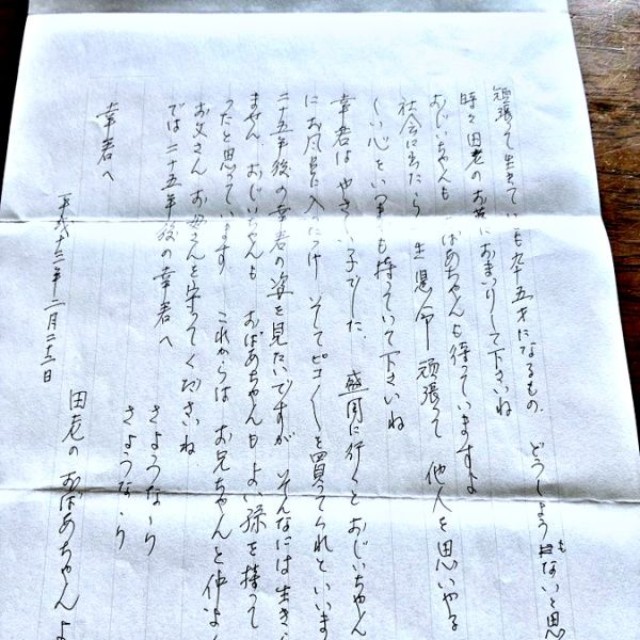 頑張って生きていても九十五才になるもの どうしようもないと思
時々田老のお墓におまいりして下さいね
おじいちゃんもおばあちゃんも待っていますよ
社会に出たら一生懸命頑張って 他人を思いやる
しい心をいつまでも持っていて下さいね
幸君はやさしい子でした 盛岡に行くとおじいちゃん
にお風呂に入れつけ そしてピコ〱を買ってられといいま
二十五年後の幸君の姿を見たいですが そんなには生き
ません おじいちゃんも おばあちゃんもよい孫を持って
ったと思っています これからは お兄ちゃんと仲よく
お父さん お母さんを守ってくださいね
では二十五年後の幸君へ
さようなら
さようなら
幸君へ
平成十二年一月二十三日
田老の おばあちゃんよ